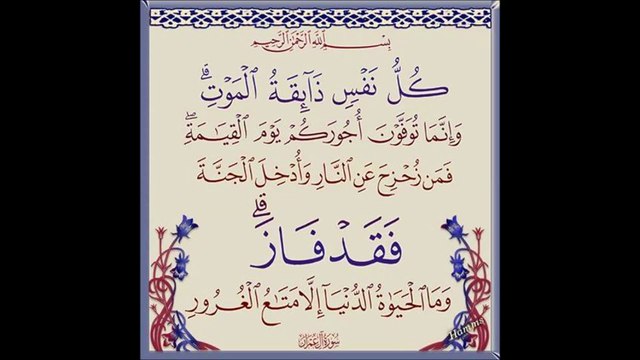 بِسْمِ اللَّهِ الرَّحْمَٰنِ الرَّحِيمِ
كُلُّ نَفْسٍ ذَآئِقَةُ الْمَوْتِ ۗ
وَإِنَّمَا تُوَفَّوْنَ أُجُورَكُمْ يَوْمَ الْقِيَامَةِ ۖ
فَمَن زُحْزِحَ عَنِ النَّارِ وَأُدْخِلَ الْجَنَّةَ
فَقَدْ فَازَ ۗ
وَمَا الْحَيَاةُ الدُّنْيَآ إِلَّا مَتَاعُ الْغُرُورِ
سُورَةُ آلِ عِمْرَان